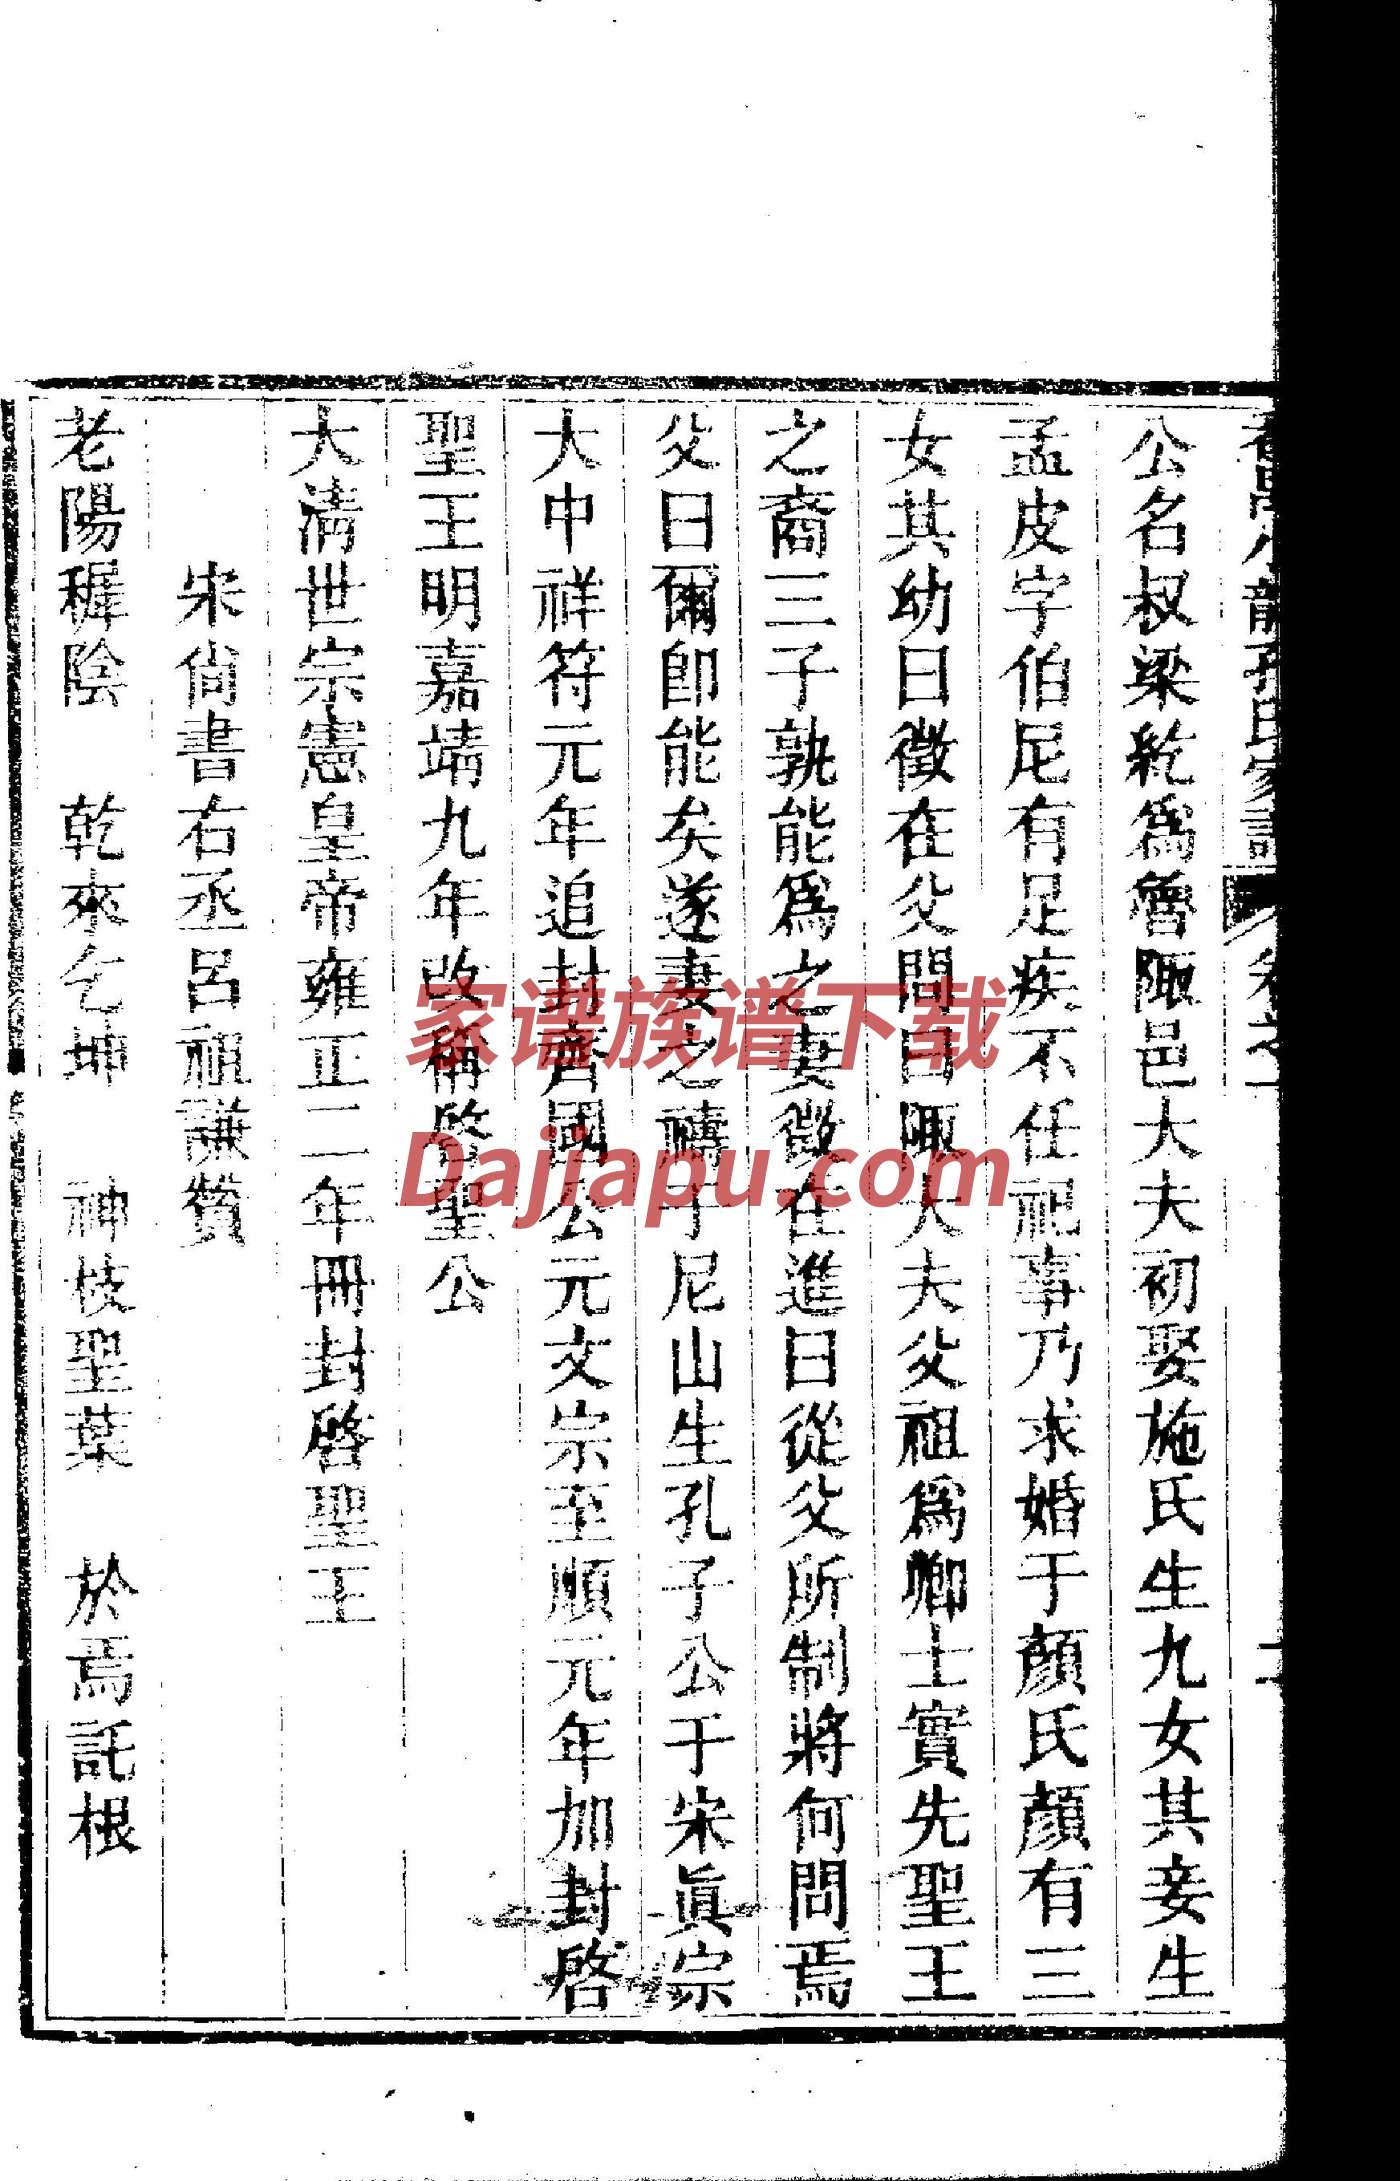 孔氏家譜 卷之一
公名叔梁紇爲魯陬邑大夫初娶施氏生九女其妾生
孟皮字伯尼有足疾不任祀事乃求婚于顏氏顏有三
女其幼曰徵在父問曰陬大夫父祖爲卿士實先聖王
之裔三子孰能爲之妻徵在進曰從父所制將何問焉
父曰爾卽能矣遂妻之禱于尼山生孔子公于宋眞宗
大中祥符元年追封齊國公元文宗至順元年加封啓
聖王明嘉靖九年改稱啓聖公
大淸世宗憲皇帝雍正二年冊封啓聖王
宋尙書右丞呂祖謙贊
老陽穉陰 乾來乞坤 神枝聖葉 於焉託根
家谱族谱下载
Dajiapu.com